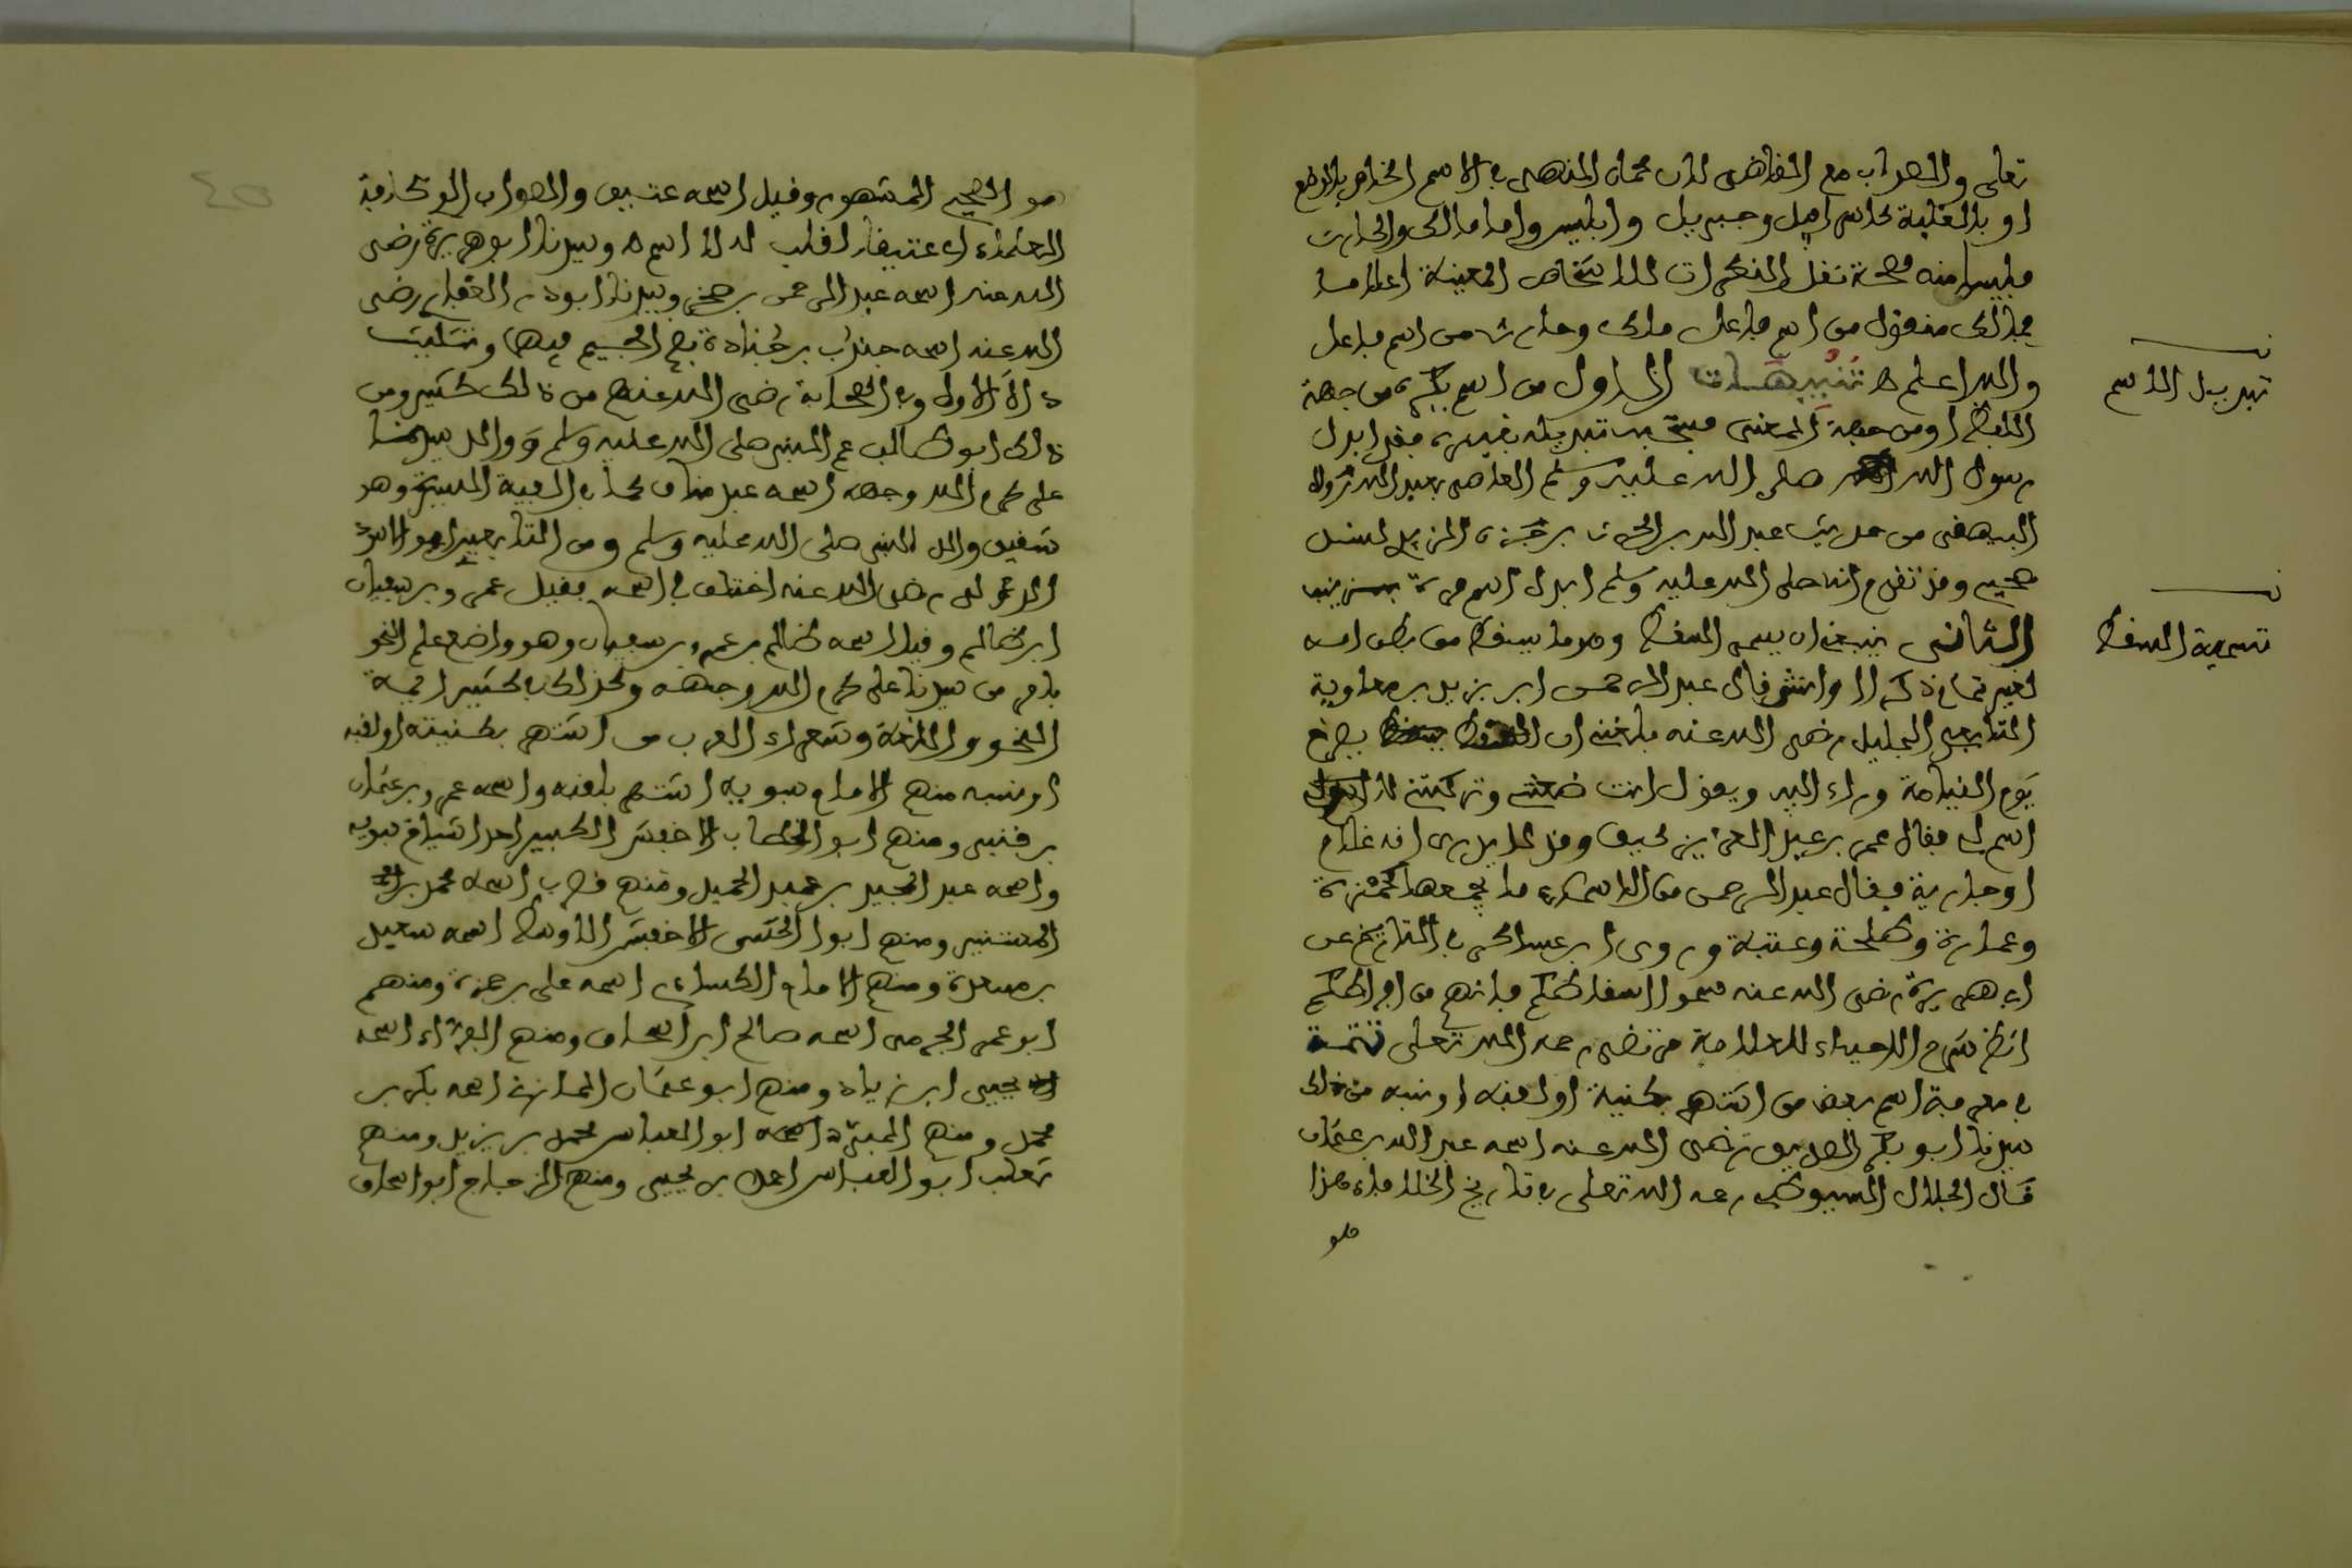 تعلى والصواب مع القاضي لان محمل النهي في الاسم الخاص بالوضع
او بالغلبة كاسرافيل وجبريل وابليس واما مالك والحارث
فليسا منه لصحة نقل النكرات للاشخاص المعينة اعلاما
فمالك منقول من اسم فاعل ملك وحارث من اسم فاعل
والله اعلم تنبيهات الاول من اسم يكره من جهة
اللفظ او من جهة المعنى فيستحب تبديله بغيره فقد ابدل
رسول الله صلى الله عليه وسلم العاصي بعبد الله رواه
البيهقي من حديث عبد الله بن الحرث بن جزء الزبيدي بسند
صحيح وقد تقدم انه صلى الله عليه وسلم ابدل اسم برة بزينب
الثاني ينبغي ان يسمى السقط وهو ما يسقط من بطن امه
لغير تمام ذكرا او انثى قال عبد الرحمن ابن يزيد بن معاوية
التابعي الجليل رضي الله عنه بلغني ان السقط يصرخ
يوم القيامة وراء ابيه ويقول انت ضيعتني وتركتني لا
اسم لي فقال عمر بن عبد العزيز كيف وقد لا يدرى انه غلام
او جارية فقال عبد الرحمن من الاسماء ما يجمعها كحمزة
وعمارة وطلحة وعتبة وروى ابن عساكر في التاريخ عن
ابي هريرة رضي الله عنه سموا اسقاطكم فانهم من افراطكم
انظر شرح الاحياء للعلامة مرتضى رحمه الله تعلى تتمة
في معرفة اسم بعض من اشتهر بكنية او لقبه او نسبه من ذلك
سيدنا ابو بكر الصديق رضي الله عنه اسمه عبد الله بن عثمان
قال الجلال السيوطي رحمه الله تعلى في تاريخ الخلفاء هذا
هو
تبديل الاسم
تسمية السقط
هو الصحيح المشهور وقيل اسمه عتيق والصواب الذي عليه
العلماء ان عتيقا لقب له لا اسم له وسيدنا ابو هريرة رضي
الله عنه اسمه عبد الرحمن بن صخر وسيدنا ابو ذر الغفاري رضي
الله عنه اسمه جندب بن جنادة بضم الجيم فيهما وتثليث
دال الاول وفي الصحابة رضي الله عنهم من ذلك كثير ومن
ذلك ابو طالب عم النبي صلى الله عليه وسلم ووالد سيدنا
علي كرم الله وجهه اسمه عبد مناف كما في الفية السيرة وهو
شقيق والد النبي صلى الله عليه وسلم ومن التابعين ابو الاسود
الدؤلي رضي الله عنه اختلف في اسمه فقيل عمرو بن سفيان
ابن ظالم وقيل اسمه ظالم بن عمرو بن سفيان وهو واضع علم النحو
بامر من سيدنا علي كرم الله وجهه وكذلك في كثير ائمة
النحو واللغة وشعراء العرب من اشتهر بكنيته او لقبه
او نسبه منهم الامام سبويه اشتهر بلقبه واسمه عمرو بن عثمان
بن قنبر ومنهم ابو الخطاب الاخفش الكبير احد اشياخ سبويه
واسمه عبد المجيد بن عبد الحميد ومنهم قطرب اسمه محمد بن
المستنير ومنهم ابو الحسن الاخفش الاوسط اسمه سعيد
بن مسعدة ومنهم الامام الكسائي اسمه علي بن حمزة ومنهم
ابو عمر الجرمي اسمه صالح ابن اسحاق ومنهم الفراء اسمه
يحيى ابن زياد ومنهم ابو عثمان المازني اسمه بكر بن
محمد ومنهم المبرد اسمه ابو العباس محمد بن يزيد ومنهم
ثعلب ابو العباس احمد بن يحيى ومنهم الزجاج ابو اسحاق